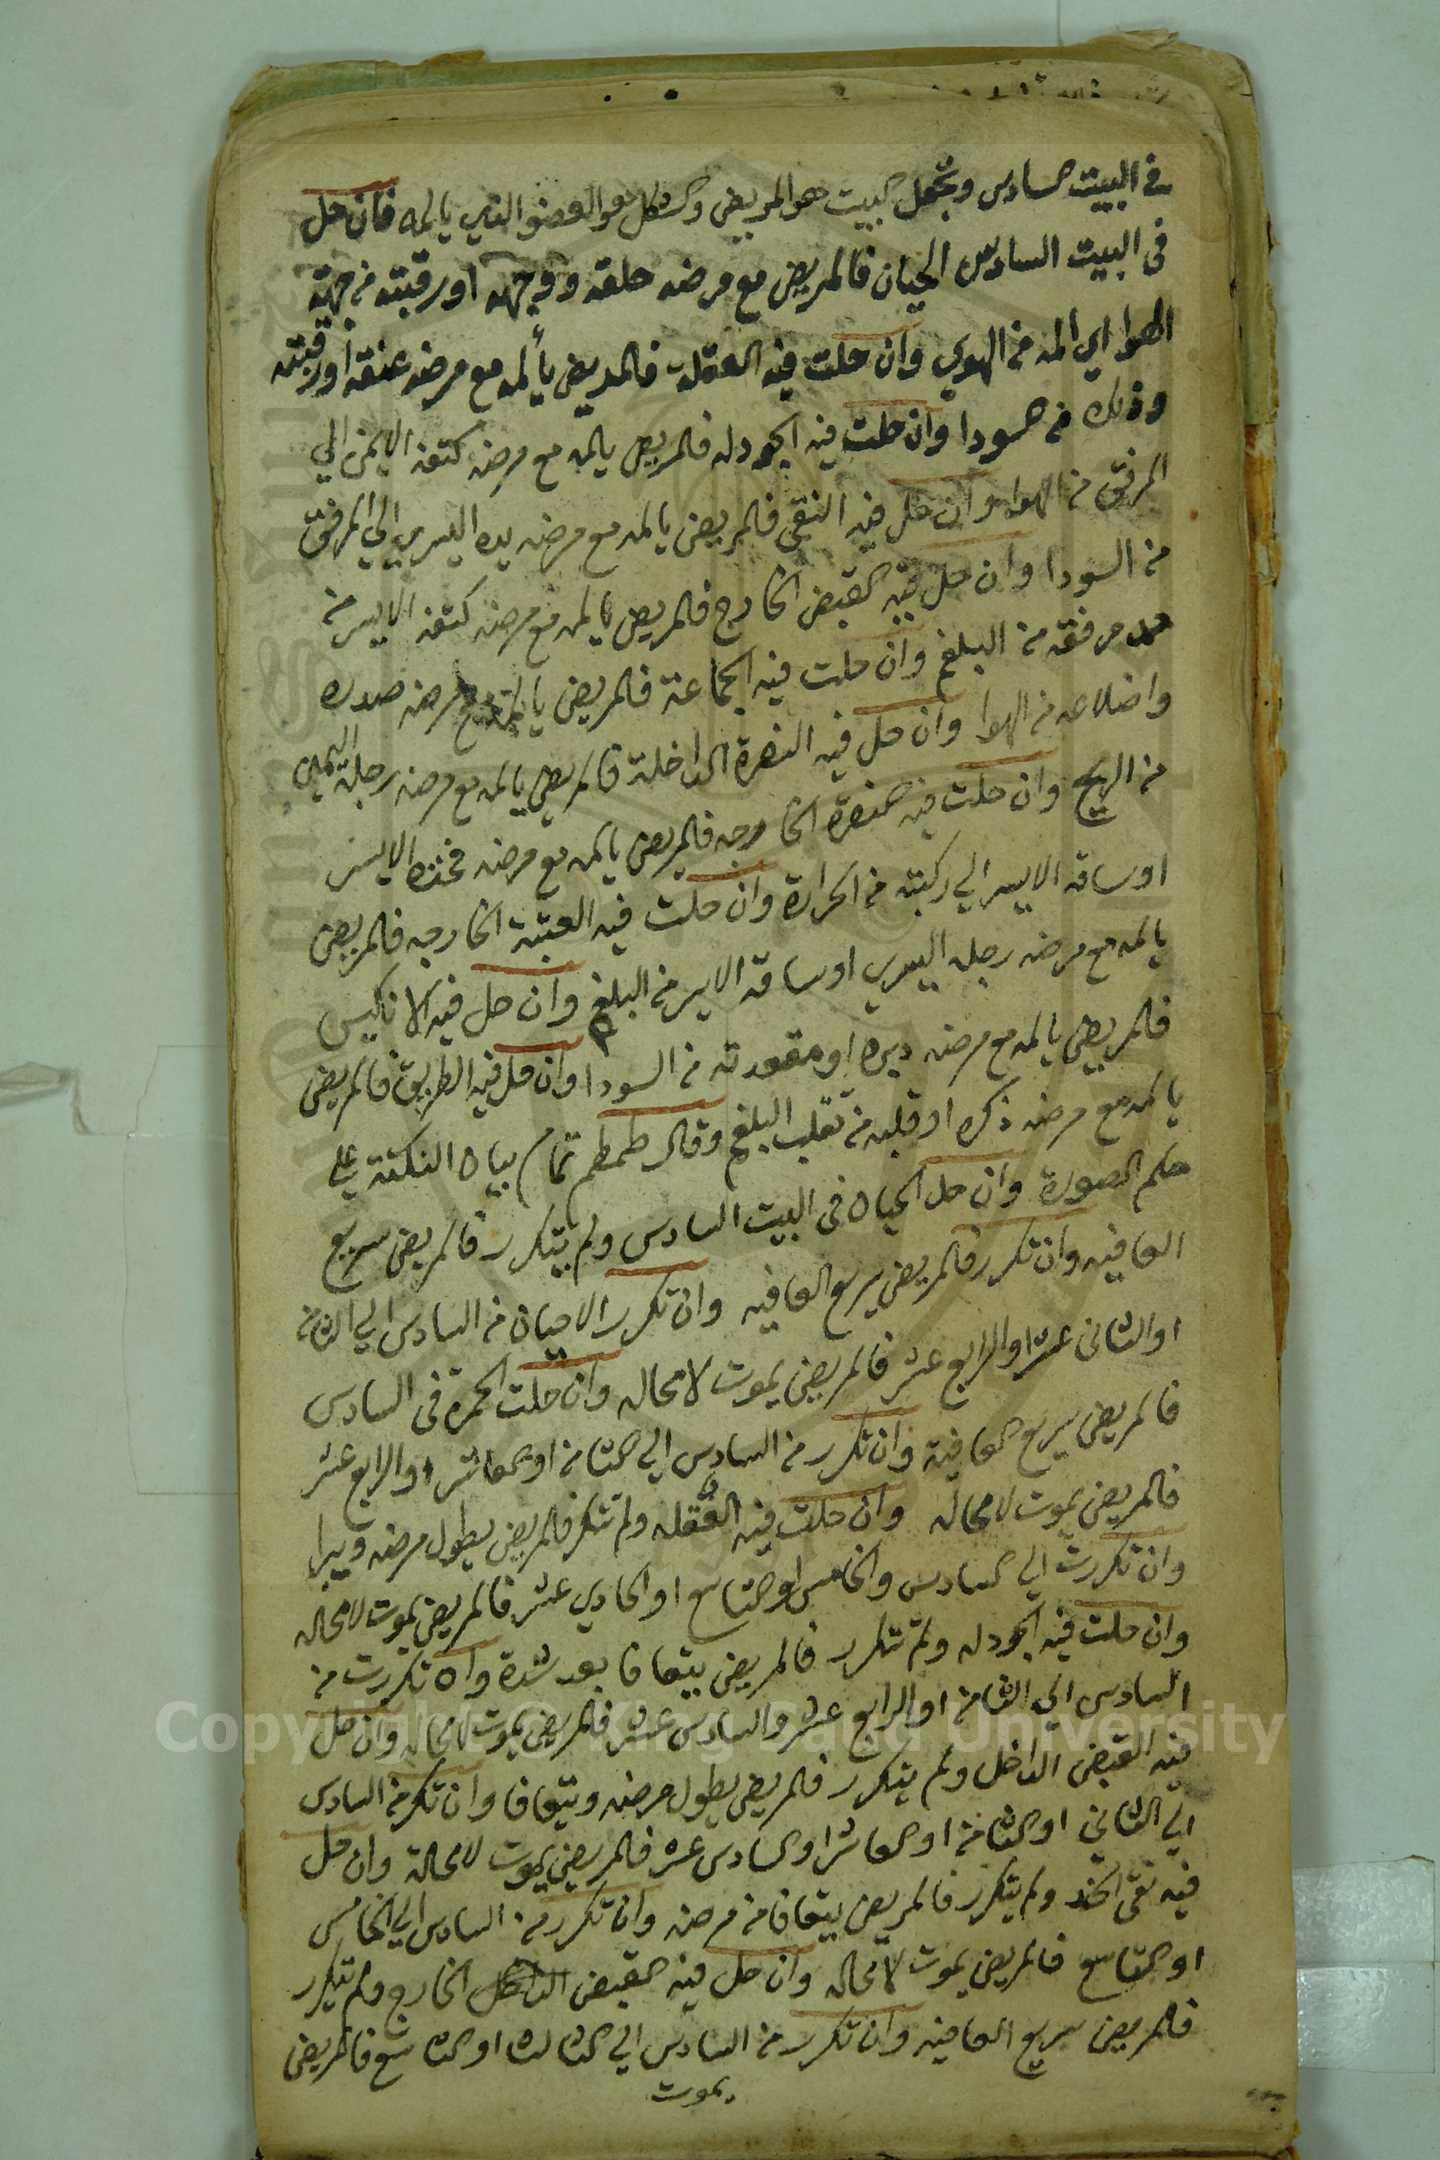 في البيت السادس وتجعل البيت هو المريض والشكل هو العضو الذي يالمه فان حل
في البيت السادس الحيان فالمريض مع مرضه حلقه ووجهه او رقبته من جهة
الهوا اي المه من الهوي وان حلت فيه العقله فالمريض يألمه مع مرضه عنقه او رقبته
وذلك من السودا وان حلت فيه الجودله فالمريض يالمه مع مرضه كتفه الايمن الي
المرفق من الهوا وان حل فيه النقي فالمريض يالمه مع مرضه يده اليسري الي المرفق
من السودا وان حل فيه القبض الخارج فالمريض يالمه مع مرضه كتفه الايسر من
مرفقه من البلغم وان حلت فيه الجماعة فالمريض يالمه مع مرضه صدره
واضلاعه من الهوا وان حل فيه النصرة الداخلة فالمريض يالمه مع مرضه رجله اليمين
من الريح وان حلت فيه النصرة الخارجه فالمريض يالمه مع مرضه فخذه الايسر
او ساقه الايسر الي ركبته من الحرارة وان حلت فيه العتبة الخارجه فالمريض
يالمه مع مرضه رجله اليسري او ساقه الايسر من البلغم وان حل فيه الانكيس
فالمريض يالمه مع مرضه دبره او مقعدته من السودا وان حل فيه الطريق فالمريض
يالمه مع مرضه ذكره او قلبه من تقلب البلغم وقال طمطم تمام بيان النكتة في علي
حكم الصورة وان حل الحيان في البيت السادس ولم يتكرر فالمريض سريع
العافيه وان تكرر فالمريض سريع العافيه وان تكرر الاحيان من السادس الي الثامن
او الثاني عشر او الرابع عشر فالمريض يموت لا محاله وان حلت الحمرة في السادس
فالمريض سريع العافية وان تكرر من السادس الي الثامن او العاشر او الرابع عشر
فالمريض يموت لا محاله وان حلت فيه العقله ولم تتكر فالمريض يطول مرضه ويبرا
وان تكررت الي السادس والخامس او التاسع او الحادي عشر فالمريض يموت لا محاله
وان حلت فيه الجودله ولم تتكرر فالمريض يتعافا بعد شدة وان تكررت من
السادس الي الثامن او الرابع عشر والسادس عشر فالمريض يموت لا محاله وان حل
فيه القبض الداخل ولم يتكرر فالمريض يطول مرضه ويتعافا وان تكرر من السادس
الي الثاني او الثامن او العاشر او السادس عشر فالمريض يموت لا محالة وان حل
فيه نقي الخد ولم يتكرر فالمريض يتعافا من مرضه وان تكرر من السادس الي الخامس
او التاسع فالمريض يموت لا محاله وان حل فيه القبض الخارج ولم يتكرر
فالمريض سريع العافيه وان تكرر من السادس الي الثالث او التاسع فالمريض
يموت
Copyright © King Saud University